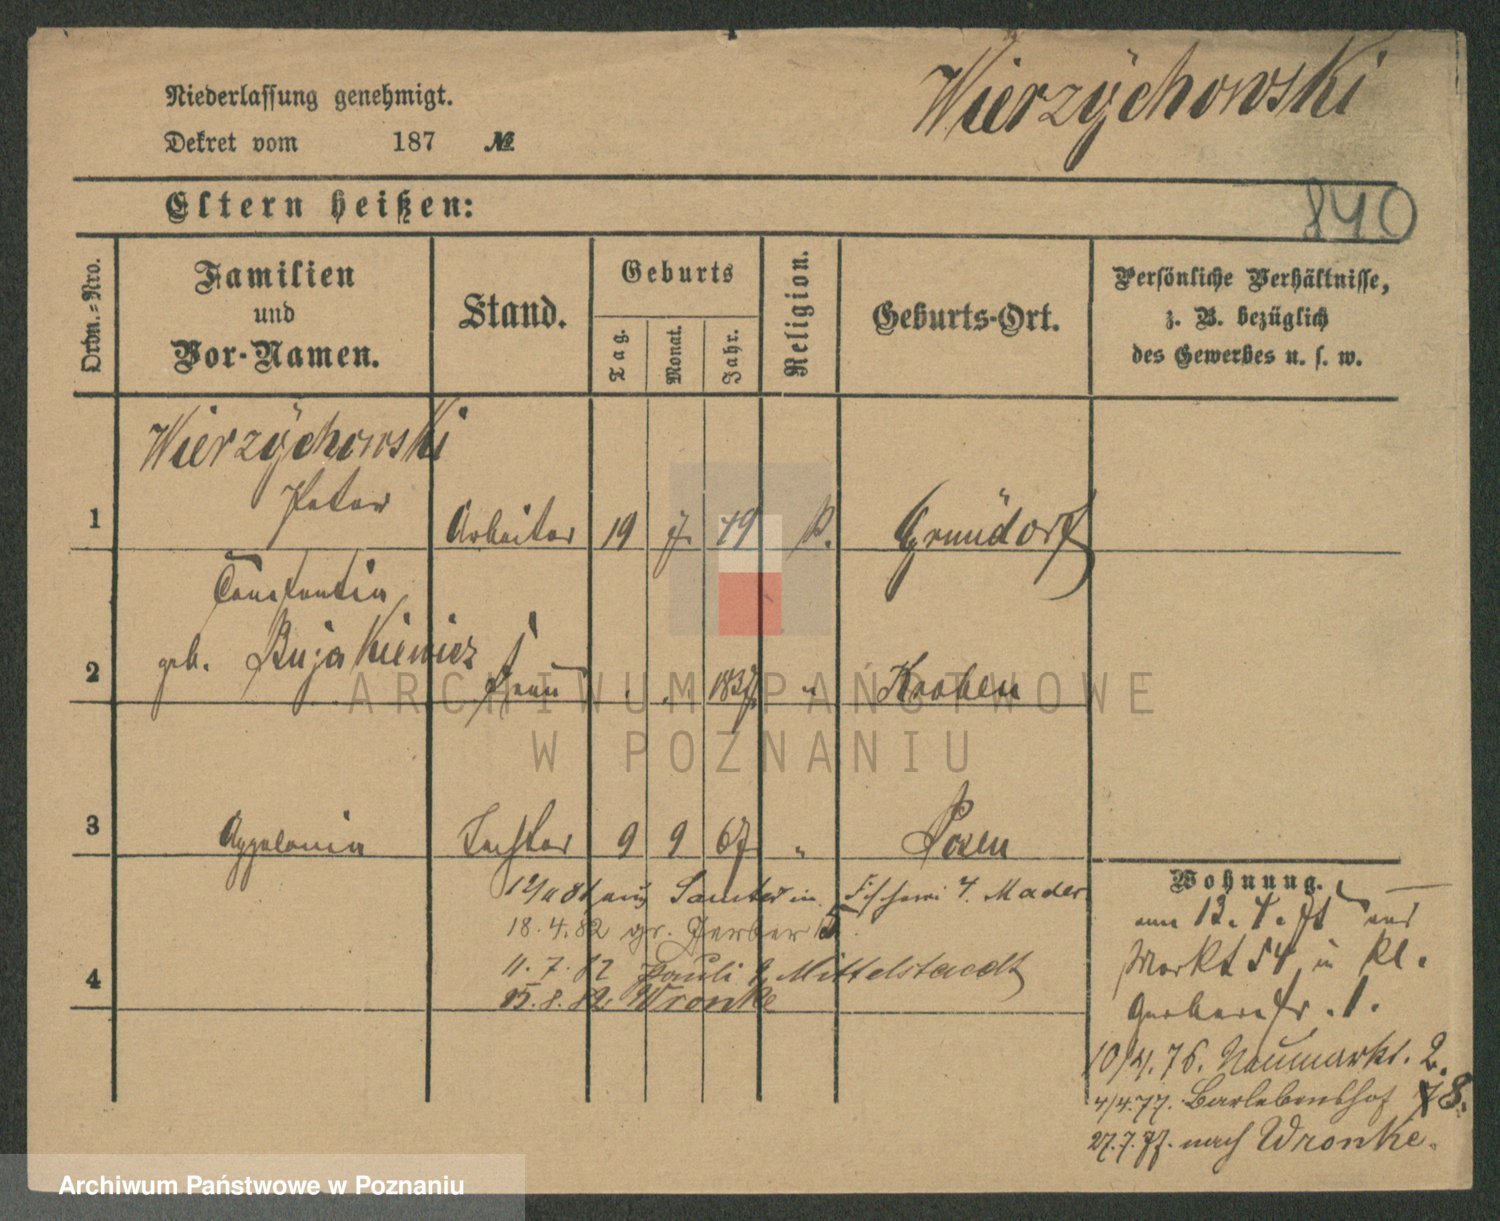 Wierzÿchowski
Niederlassung genehmigt.
Dekret vom 187 №
840
Eltern heißen:
Ordn.-Nro.
Familien
und
Vor-Namen.
Stand.
Geburts
Tag.
Monat.
Jahr.
Religion.
Geburts-Ort.
Persönliche Verhältnisse,
z. B. bezüglich
des Gewerbes u. s. w.
Wierzÿchowski
Peter
1 Arbeiter 19 7. 49 k. Grundorf
Constantia
geb. Bujakiewicz
2 Frau . . 1837. " Kroben
3 Appolonia Tochter 9 9 67 " Posen
12/11 81 aus Samter in Fischerei 7. Mader
18.4.82 gr. Gerber 5.
11.7.82 Pauli 9 Mittelstaedt
4 15.8.82. Wronke
Wohnung.
am 13.4.71 aus
Markt 54 in kl.
Gerberstr. 1.
10/4.76. Neumarkt. 2.
4/4.77. Barlebenshof 8.
27.7.77. nach Wronke.
ARCHIWUM PAŃSTWOWE
W POZNANIU
Archiwum Państwowe w Poznaniu